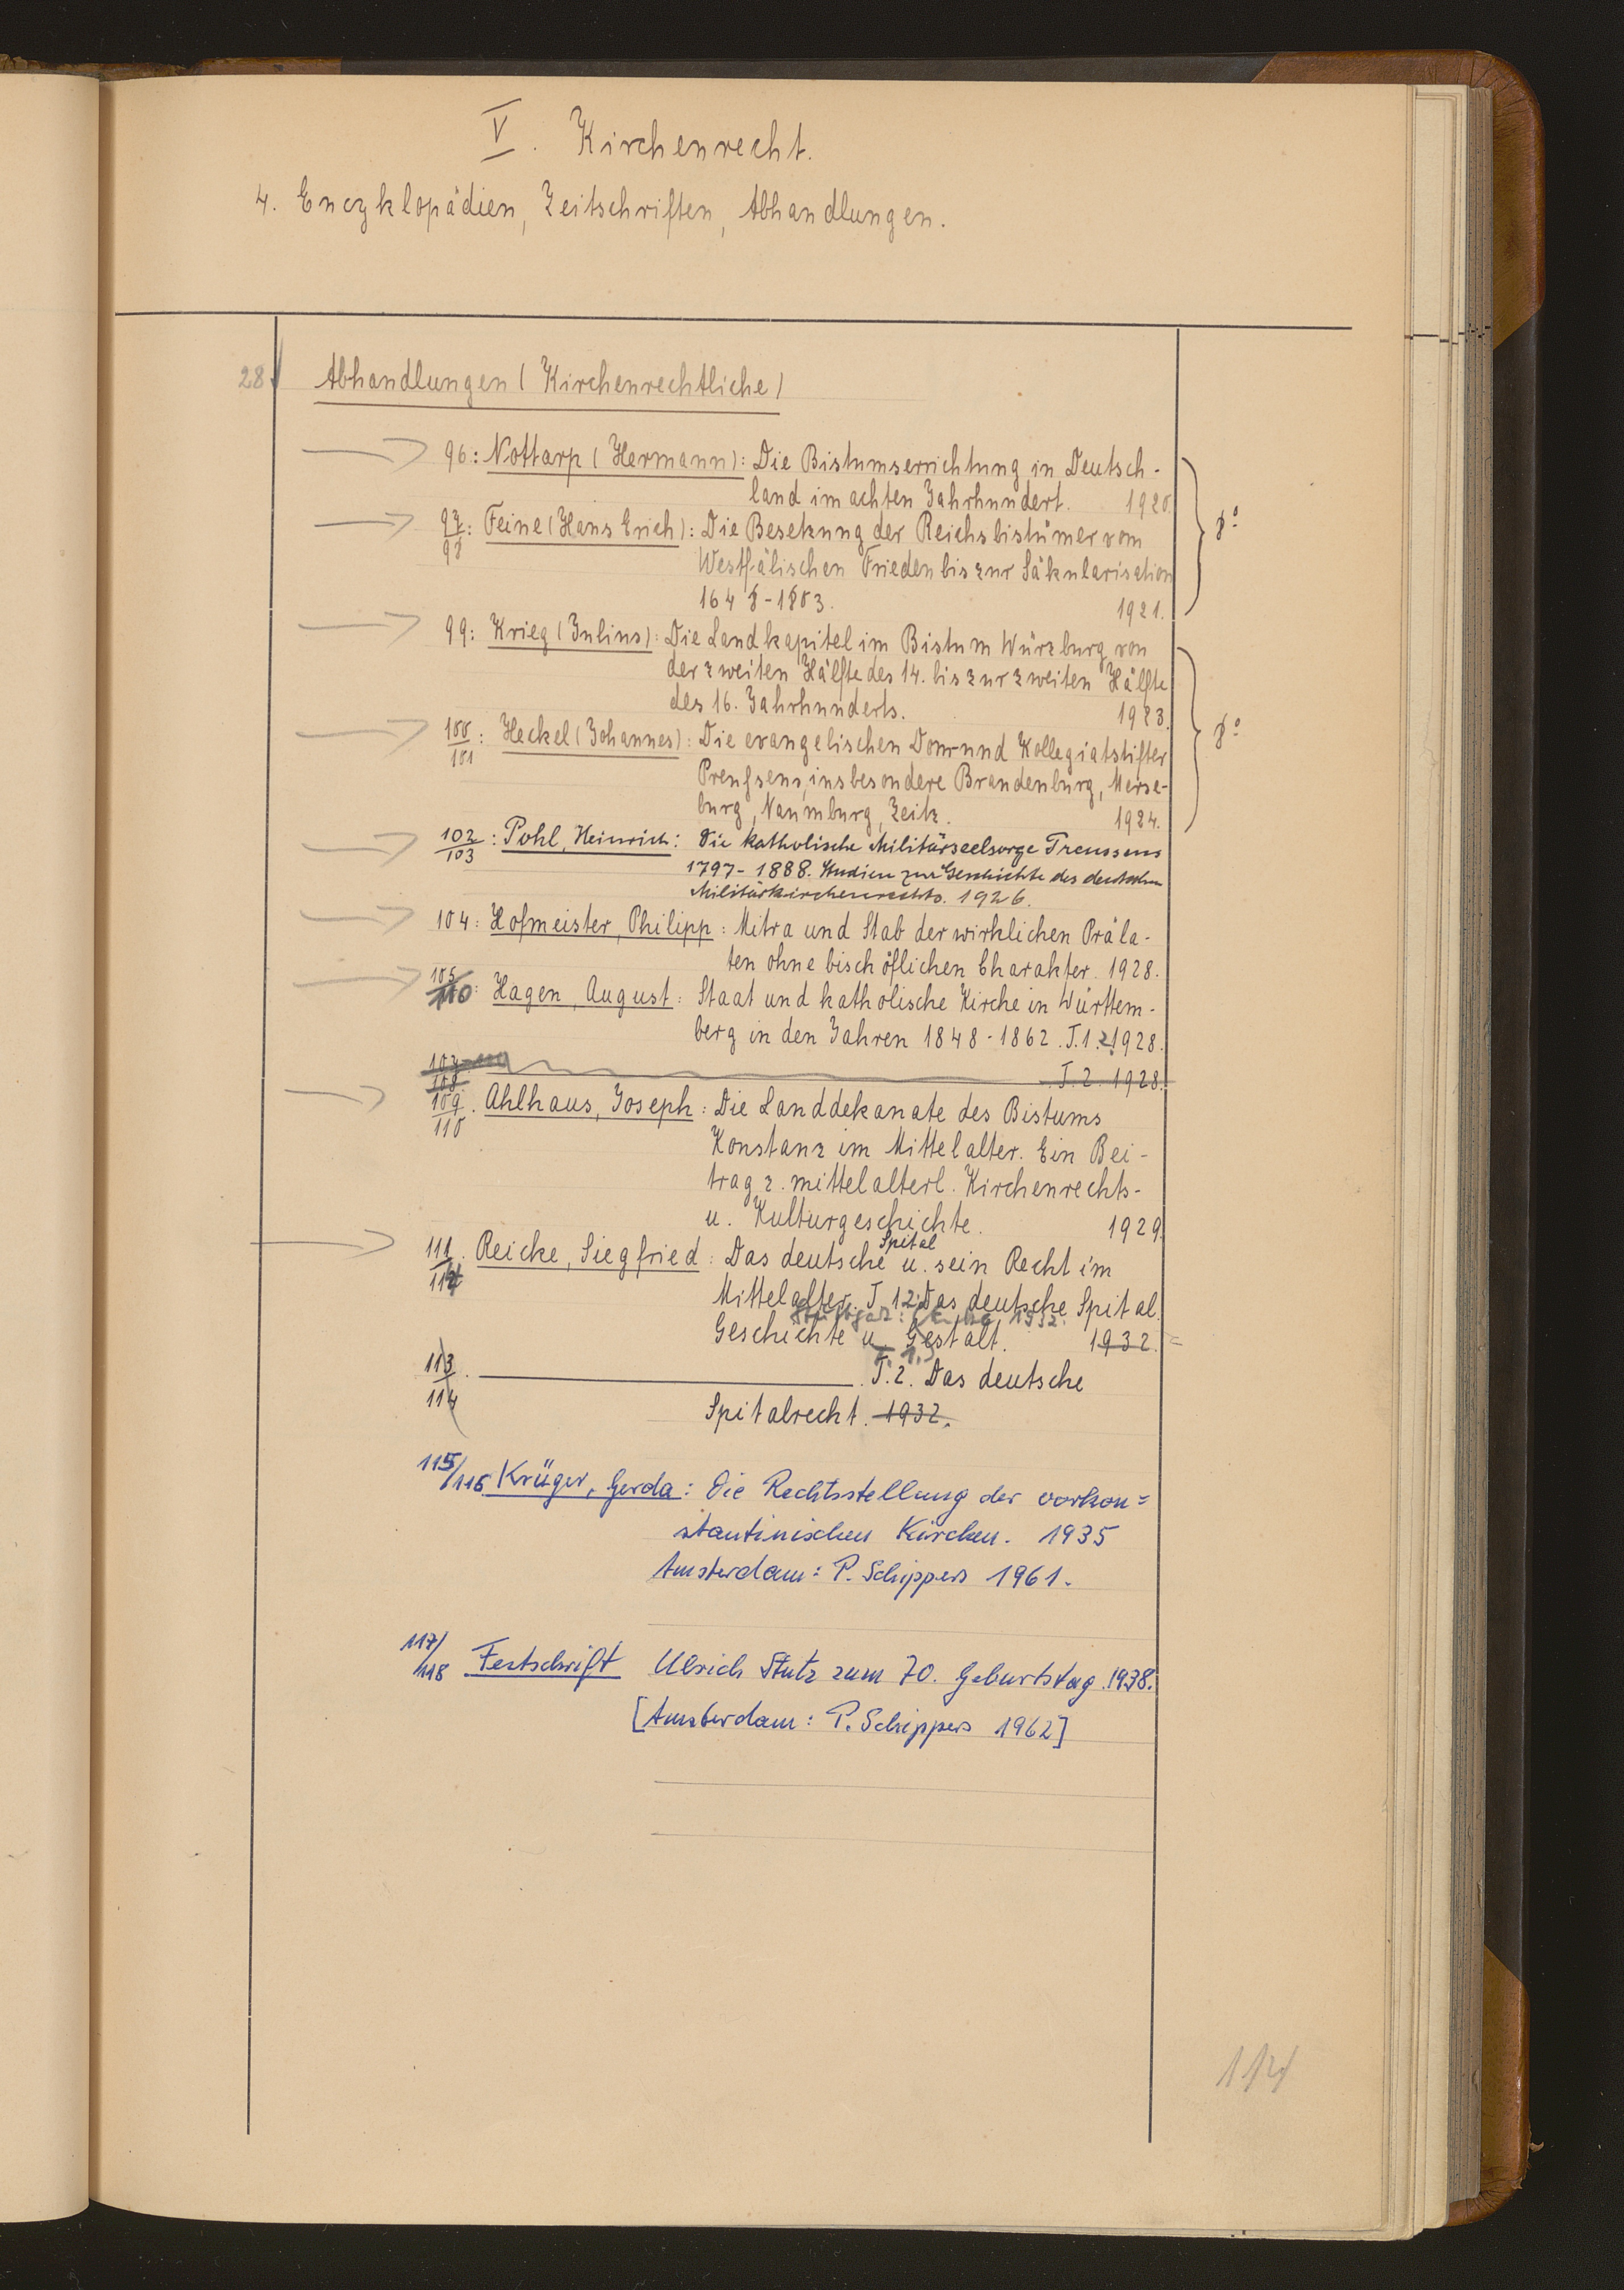 V. Kirchenrecht.
4. Encyklopädien, Zeitschriften, Abhandlungen.
28 Abhandlungen (Kirchenrechtliche)
96: Nottarp (Hermann): Die Bistumserrichtung in Deutsch-
land im achten Jahrhundert. 1920.
97/98: Feine (Hans Erich): Die Besetzung der Reichsbistümer vom
Westfälischen Frieden bis zur Säkularisation
1648-1803. 1921.
8°
99: Krieg (Julius): Die Landkapitel im Bistum Würzburg von
der zweiten Hälfte des 14. bis zur zweiten Hälfte
des 16. Jahrhunderts. 1923.
100/101: Heckel (Johannes): Die evangelischen Dom- und Kollegiatstifter
Preußens, insbesondere Brandenburg, Merse-
burg, Naumburg, Zeitz. 1924.
8°
102/103: Pohl, Heinrich: Die katholische Militärseelsorge Preussens
1797-1888. Studien zur Geschichte des deutschen
Militärkirchenrechts. 1926.
104: Hofmeister, Philipp: Mitra und Stab der wirklichen Präla-
ten ohne bischöflichen Charakter. 1928.
105/110: Hagen, August: Staat und katholische Kirche in Württem-
berg in den Jahren 1848-1862. T.1.2. 1928.
107/108. T.2. 1928.
109/110. Ahlhaus, Joseph: Die Landdekanate des Bistums
Konstanz im Mittelalter. Ein Bei-
trag z. mittelalterl. Kirchenrechts-
u. Kulturgeschichte. 1929.
111/114. Reicke, Siegfried: Das deutsche Spital u. sein Recht im
Mittelalter. T. 1.2. Das deutsche Spital.
Stuttgart: Enke 1932.
Geschichte u. Gestalt. 1932.
113/114. T.2. Das deutsche
Spitalrecht. 1932.
115/116 Krüger, Gerda: Die Rechtsstellung der vorkon=
stantinischen Kirchen. 1935
Amsterdam: P. Schippers 1961.
117/118 Festschrift Ulrich Stutz zum 70. Geburtstag. 1938.
[Amsterdam: P. Schippers 1962]
114